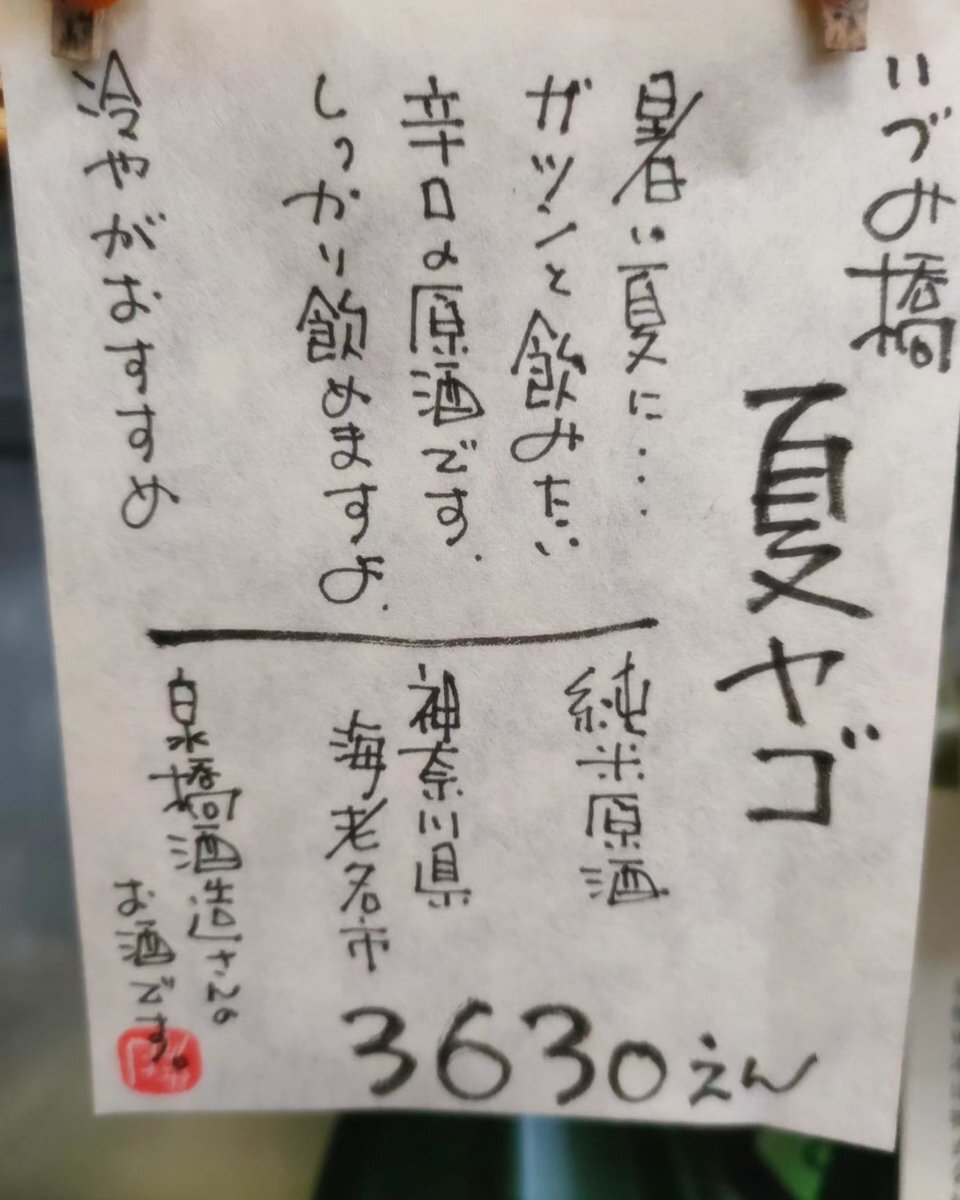 いづみ橋
夏ヤゴ
暑い夏に…
ガツンと飲みたい
辛口の原酒です.
しっかり飲めますよ.
冷やがおすすめ
純米原酒
神奈川県
海老名市
泉橋酒造さんの
お酒です。
3630えん